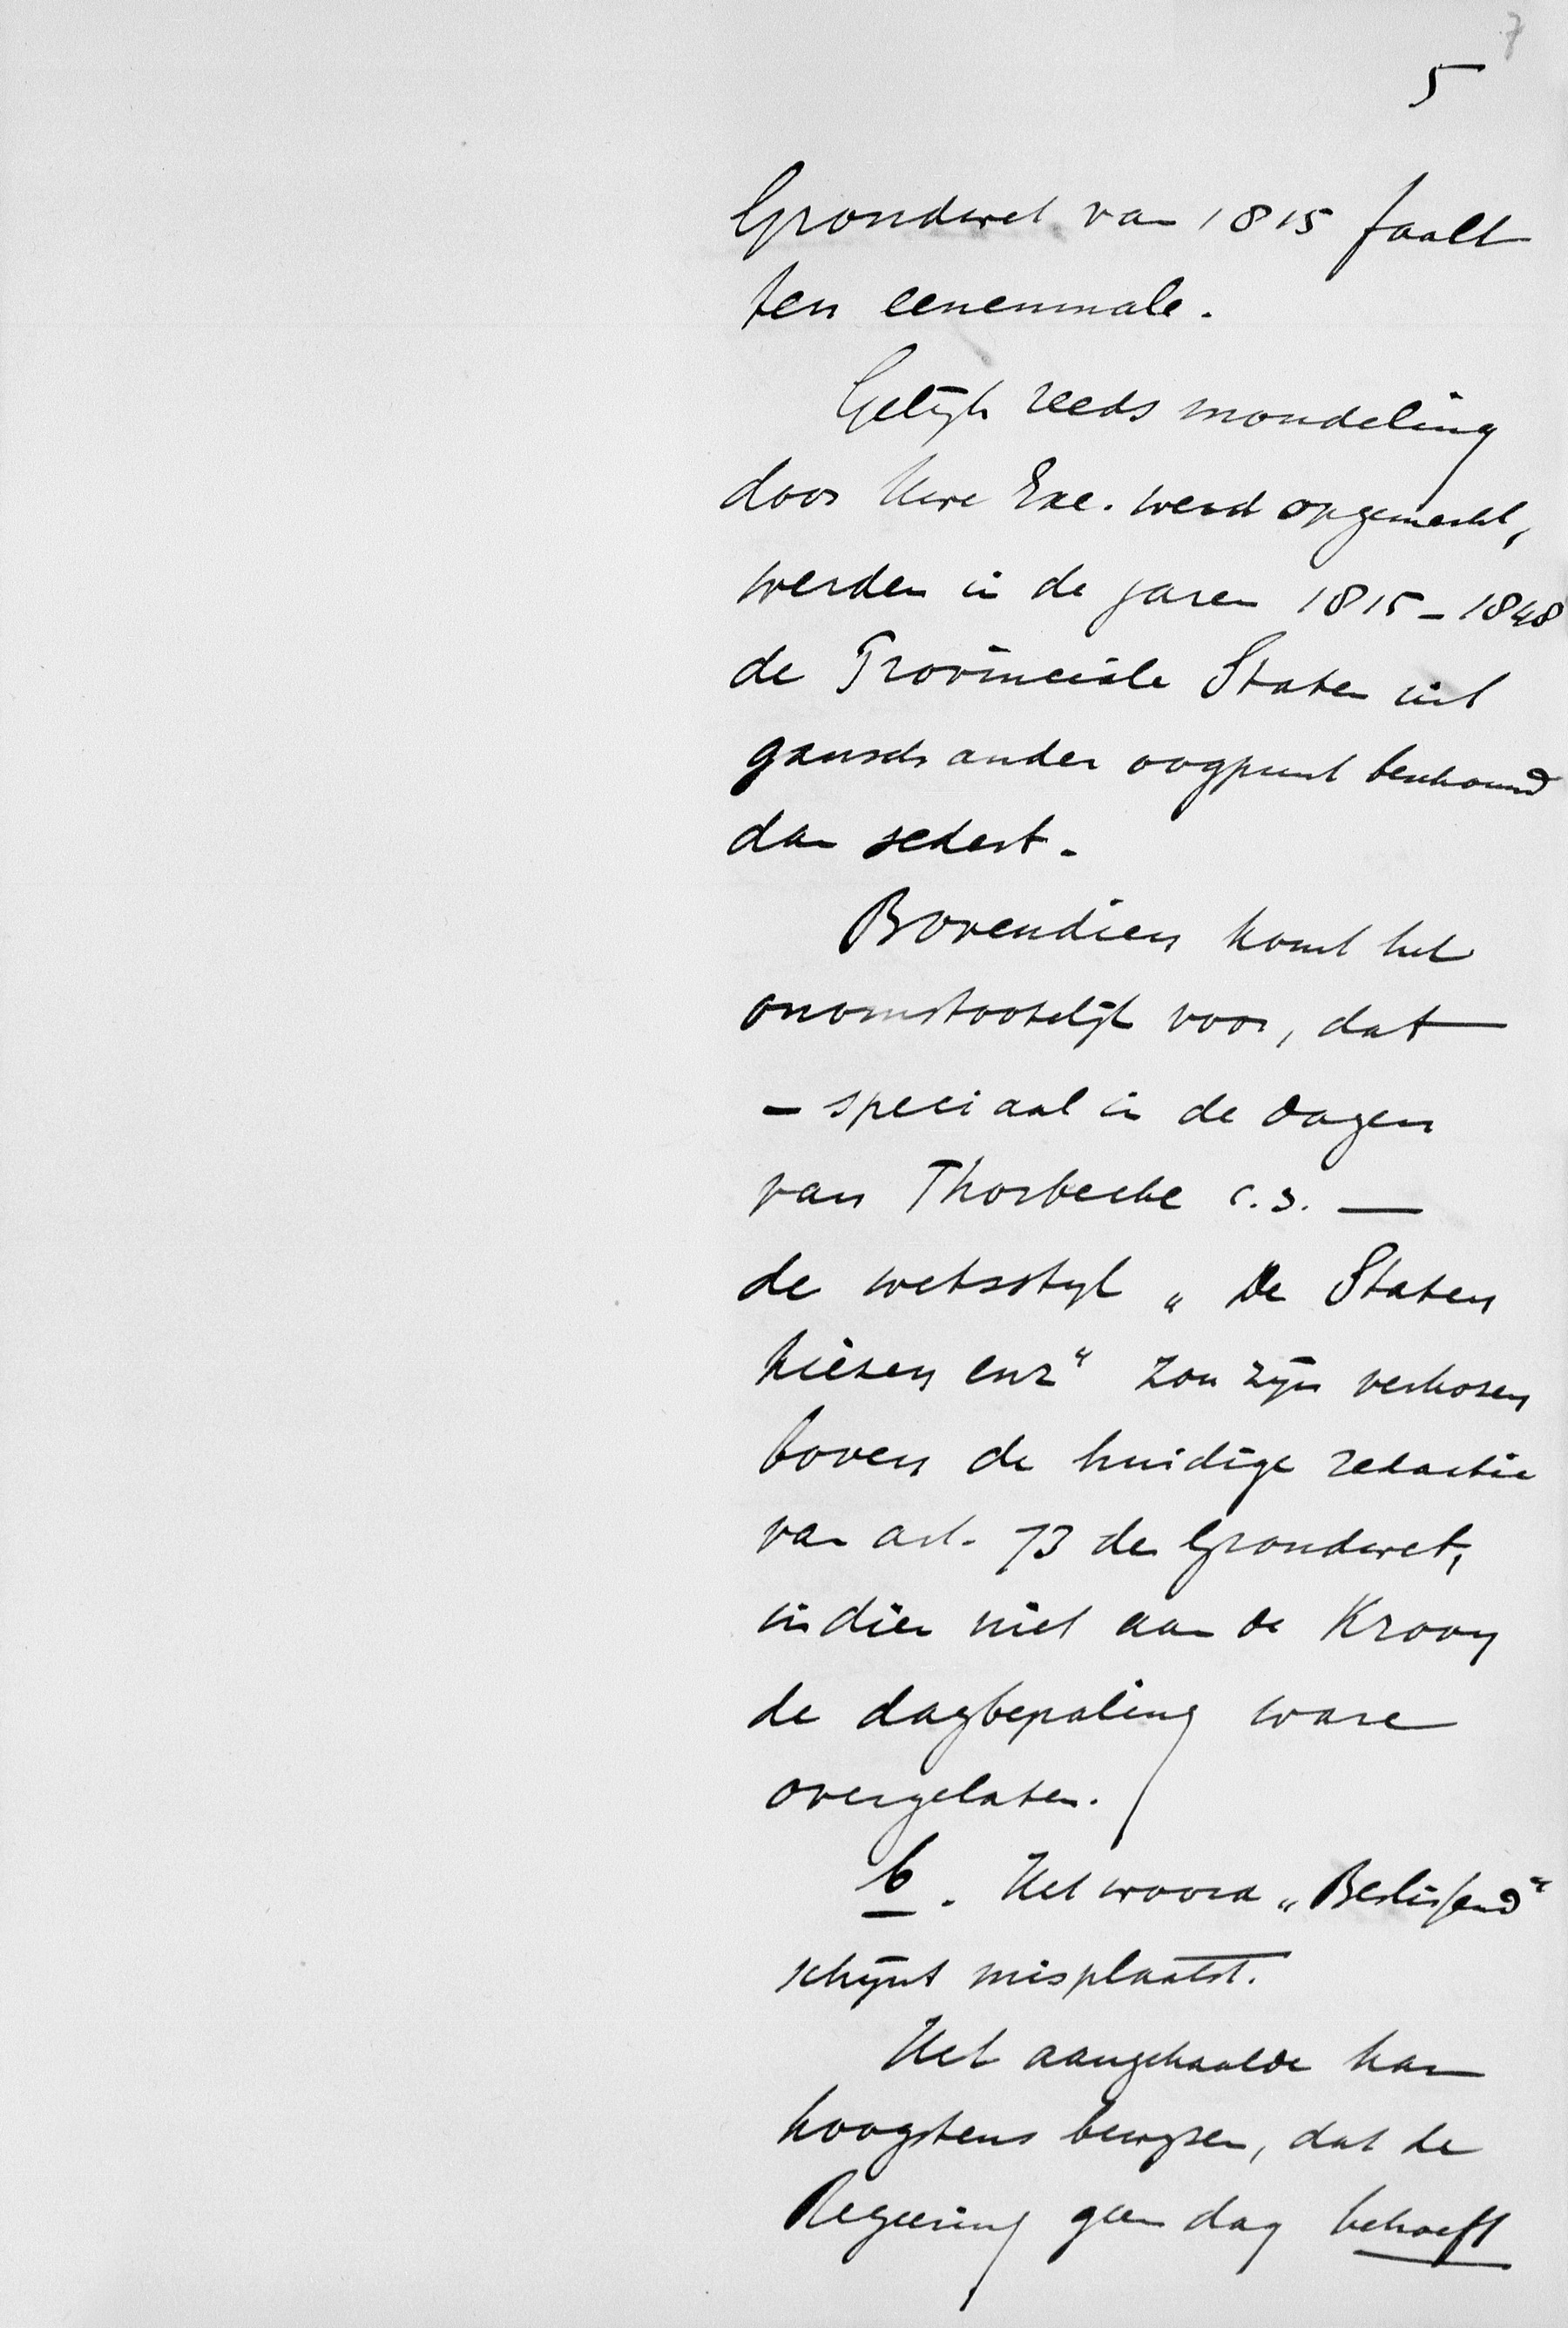 7
5
Grondwet van 1815 faalt
ten eenenmale.
Gelijk reeds mondeling
door Uwe Exc. werd opgemerkt,
werden in de jaren 1815-1848
de Provinciale Staten uit
gansch ander oogpunt beschouwd
dan sedert.
Bovendien komt het
onomstootelijk voor, dat
- speciaal in de dagen
van Thorbecke c.s. -
de wetsstijl „De Staten
kiezen enz“ zou zijn verkozen
boven de huidige redactie
van art. 73 der Grondwet,
indien niet aan de Kroon
de dagbepaling ware
overgelaten.
b. Het woord „Beslissend“
schijnt misplaatst.
Het aangehaalde kan
hoogstens bewijzen, dat de
Regeering geen dag behoeft